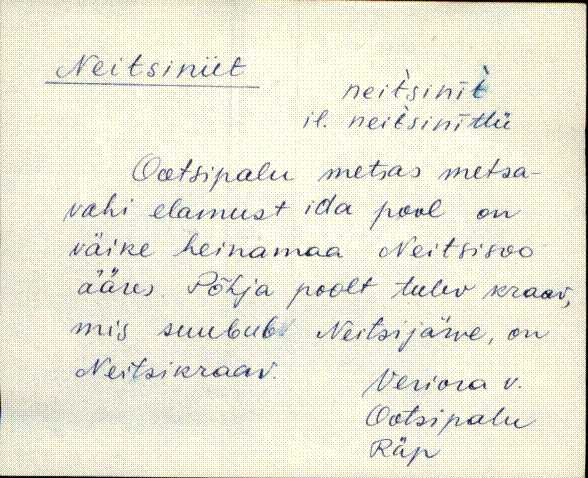 Neitsiniit
neit̀sinīt̀
il. neit̀sinīttü
Ootsipalu metsas metsa-
vahi elamust ida pool on
väike heinamaa Neitsisoo
ääres. Põhja poolt tulev kraav,
mis suubub Neitsijärve, on
Neitsikraav.
Veriora v.
Ootsipalu
Räp